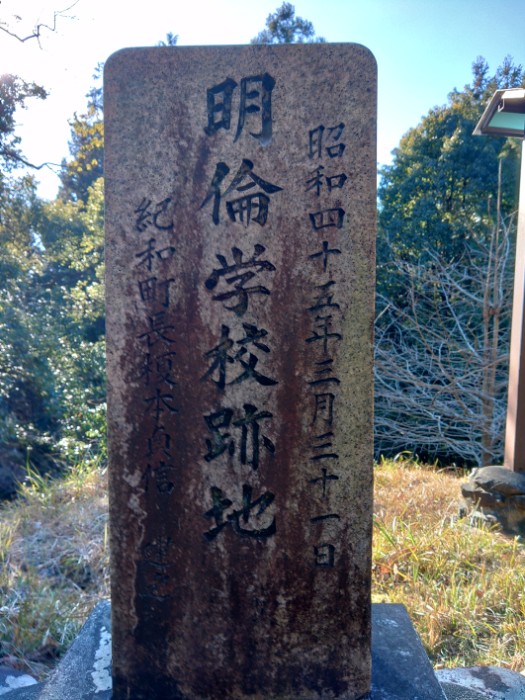 昭和四十五年三月三十一日
明倫学校跡地
紀和町長榎本貞信